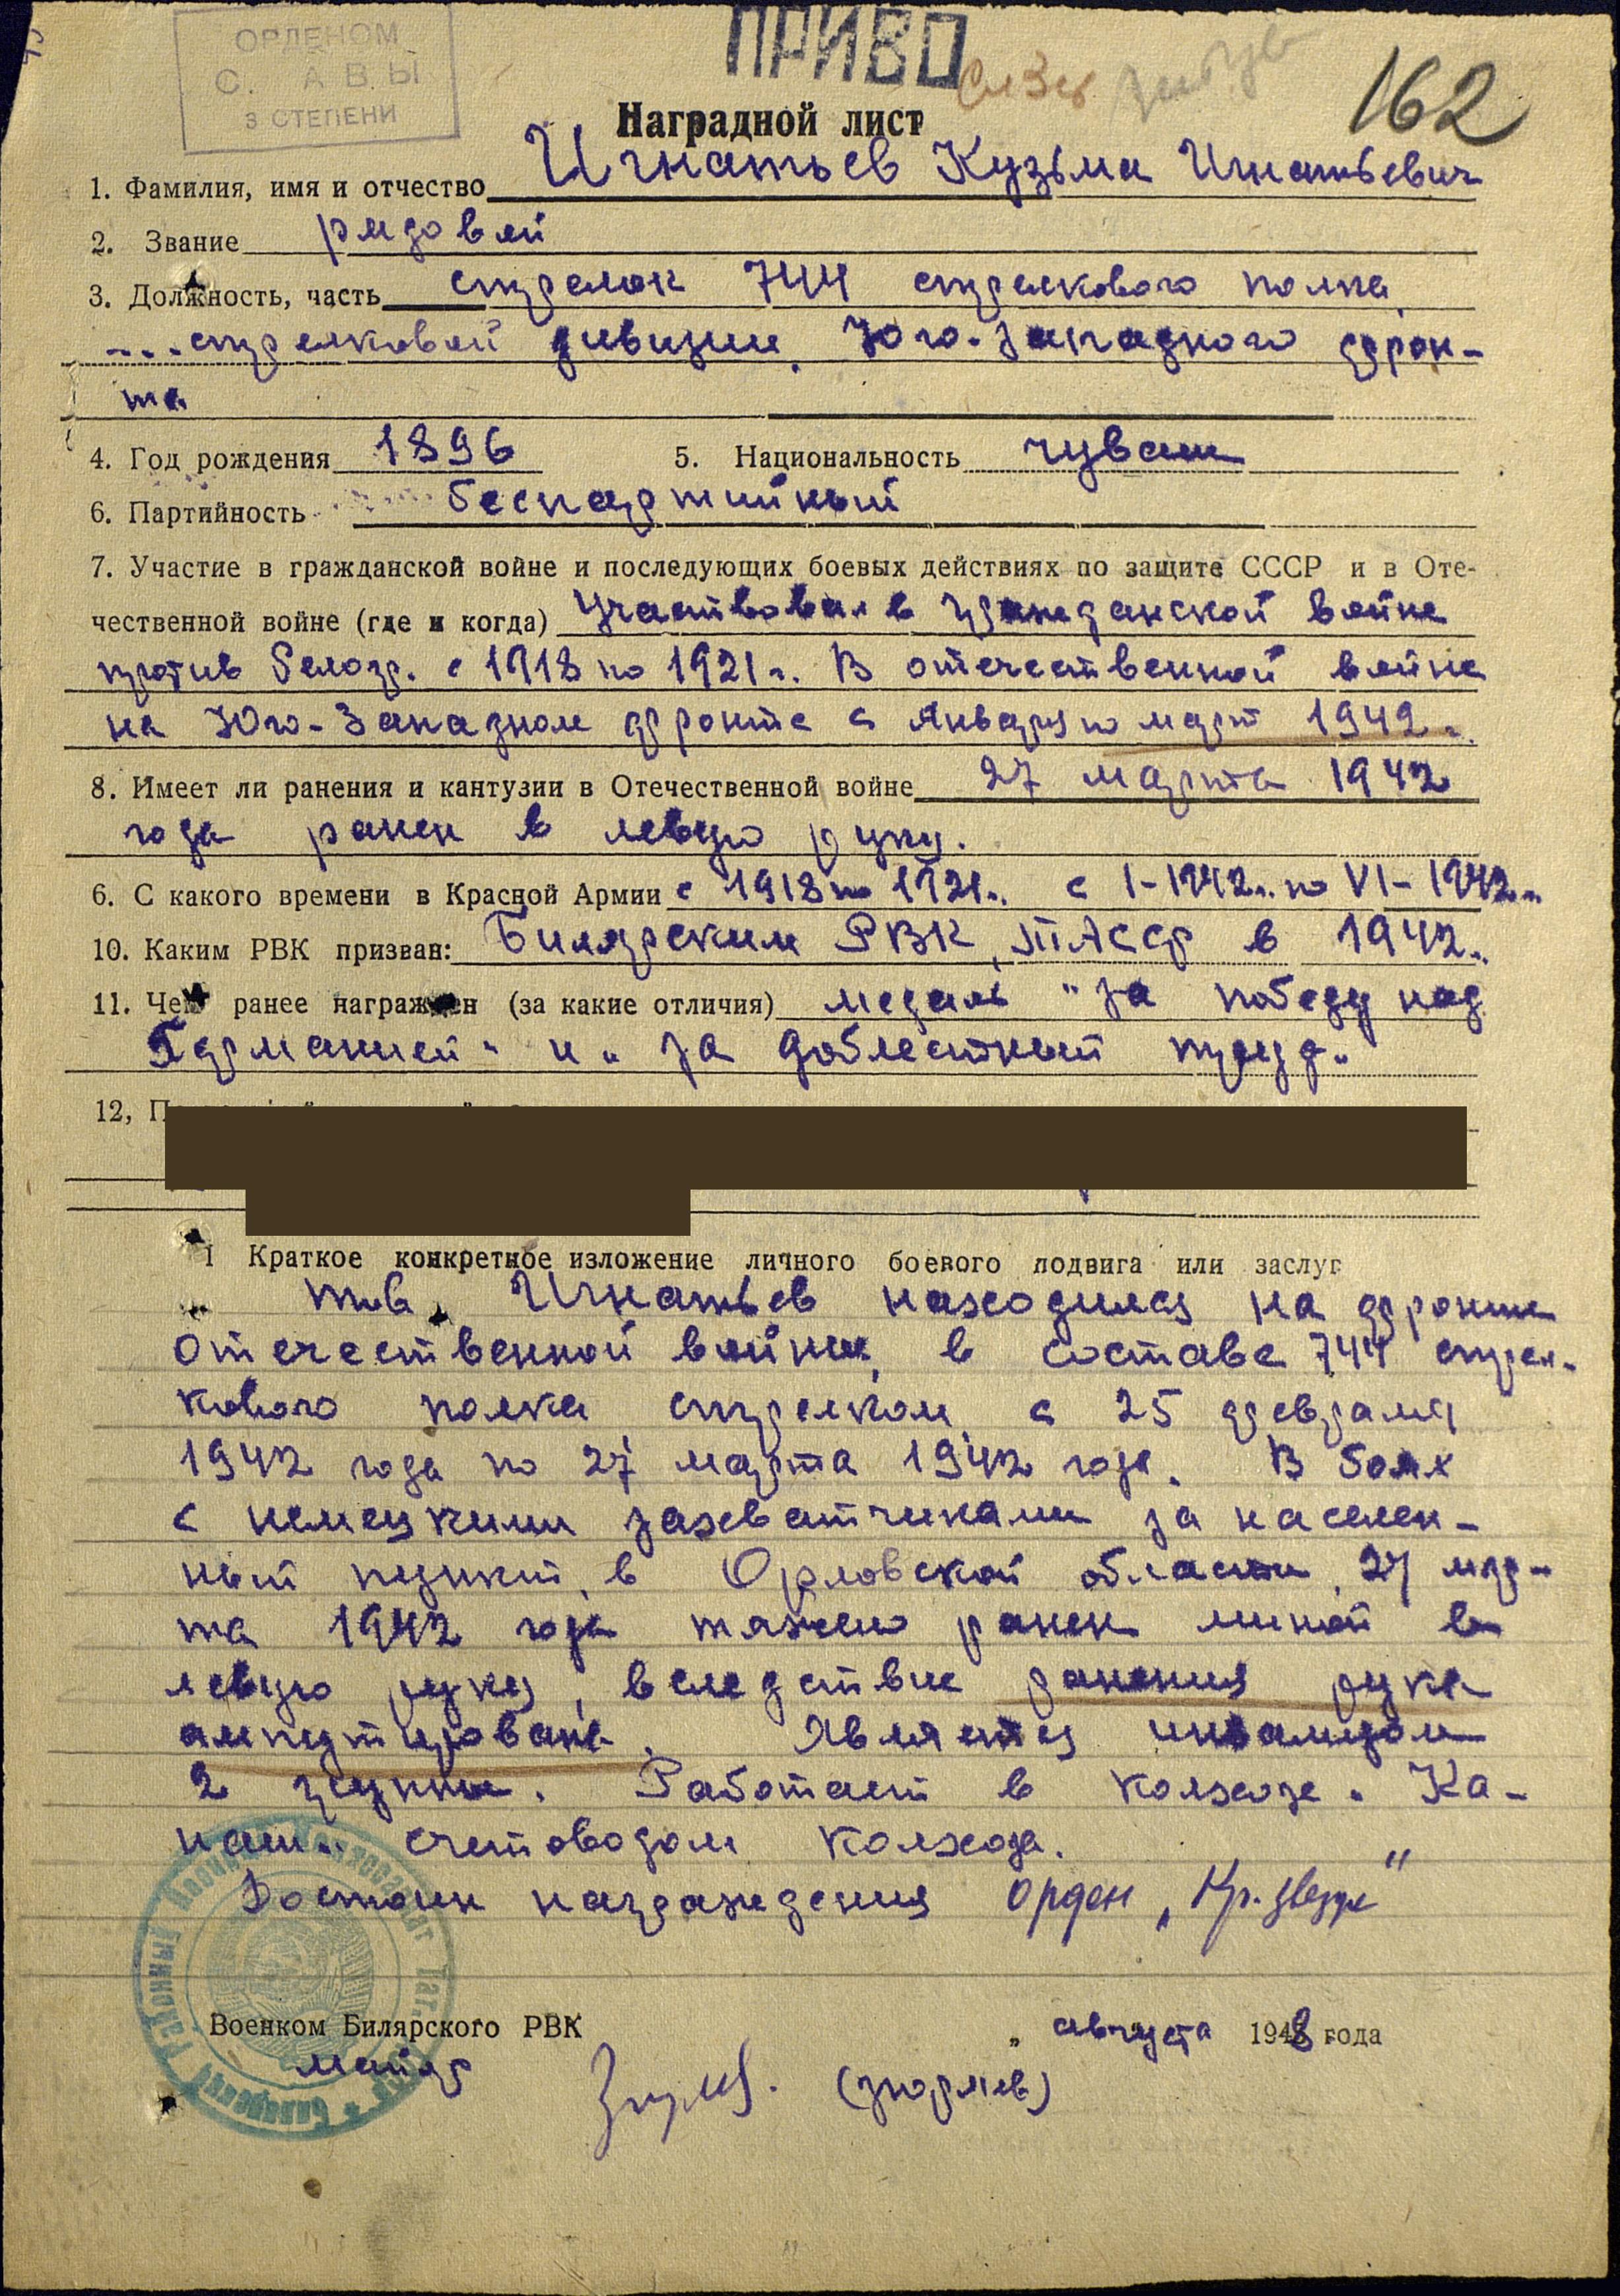 ПРИВО
ОРДЕНОМ
С. АВЫ
3 СТЕПЕНИ
162
Наградной лист
1. Фамилия, имя и отчество Игнатьев Кузьма Игнатьевич
2. Звание рядовой
3. Должность, часть стрелок 744 стрелкового полка
... стрелковой дивизии, Юго-Западного фрон-
та
4. Год рождения 1896 5. Национальность чуваш
6. Партийность беспартийный
7. Участие в гражданской войне и последующих боевых действиях по защите СССР и в Оте-
чественной войне (где и когда) Участвовал в гражданской войне
против белогв. с 1918 по 1921 г. В отечественной войне
на Юго-Западном фронте с Января по март 1942 г.
8. Имеет ли ранения и кантузии в Отечественной войне 27 марта 1942
года ранен в левую руку.
6. С какого времени в Красной Армии с 1918 по 1921 г. с I-1942 г. по VI-1942 г.
10. Каким РВК призван: Билярским РВК, ТАССР в 1942 г.
11. Чем ранее награжден (за какие отличия) медаль "За победу над
Германией" и "За доблестный труд"
12, П
1 Краткое конкретное изложение личного боевого подвига или заслуг
тов. Игнатьев находился на фронте
отечественной войны, в составе 744 стрел-
кового полка стрелком с 25 февраля
1942 года по 27 марта 1942 года. В боях
с немецкими захватчиками за населен-
ный пункт, в Орловской области, 27 мар-
та 1942 года тяжело ранен миной в
левую руку, вследствие ранения рука
ампутирована. Является инвалидом
2 группы. Работает в колхозе "Ка-
наш" счетоводом колхоза.
Достоин награждения орден "Кр. звезда"
Военком Билярского РВК „ августа 1948 года
майор